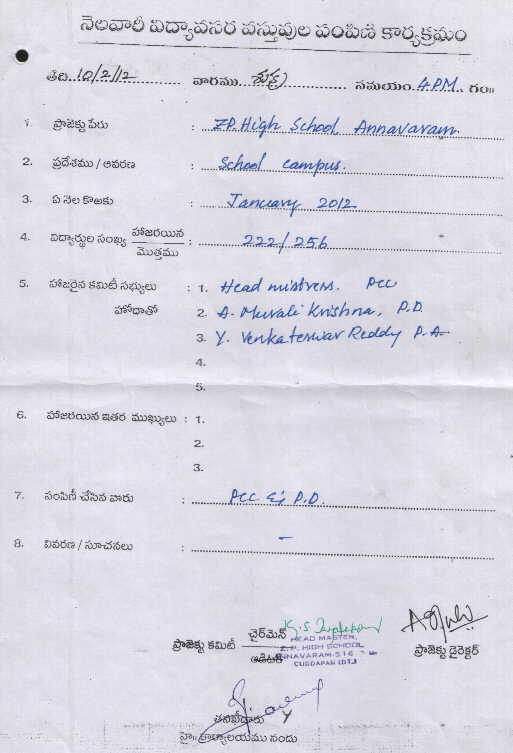 నెలవారీ విద్యావసర వస్తువుల పంపిణి కార్యక్రమం
తేది. 10/2/12 వారము శుక్ర సమయం. 4 PM. గం॥
1. ప్రాజెక్టు పేరు : ZP. High School Annavaram
2. ప్రదేశము / ఆవరణ : School campus.
3. ఏ నెల కొఱకు : January 2012
4. విద్యార్థుల సంఖ్య హాజరయిన / మొత్తము : 222/256
5. హాజరైన కమిటీ సభ్యులు : 1. Head mistress. PCC
హోదాతో 2. A. Murali Krishna, P.D.
3. Y. Venkateswar Reddy P.A.
4.
5.
6. హాజరయిన ఇతర ముఖ్యులు : 1.
2.
3.
7. పంపిణీ చేసిన వారు : PCC & P.D.
8. వివరణ / సూచనలు : -
ప్రాజెక్టు కమిటీ చైర్‌మెన్
ఆడిటర్
HEAD MASTER,
Z.P. HIGH SCHOOL
ANNAVARAM-516
CUDDAPAH (DT.)
ప్రాజెక్టు డైరెక్టర్
తనిఖీదారు
హై॥ కార్యాలయము నందు